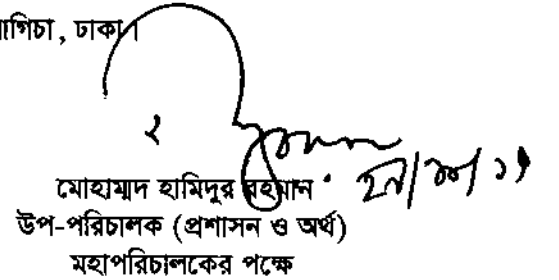 গিচা, ঢাকা।
মোহাম্মদ হামিদুর রহমান
উপ-পরিচালক (প্রশাসন ও অর্থ)
মহাপরিচালকের পক্ষে